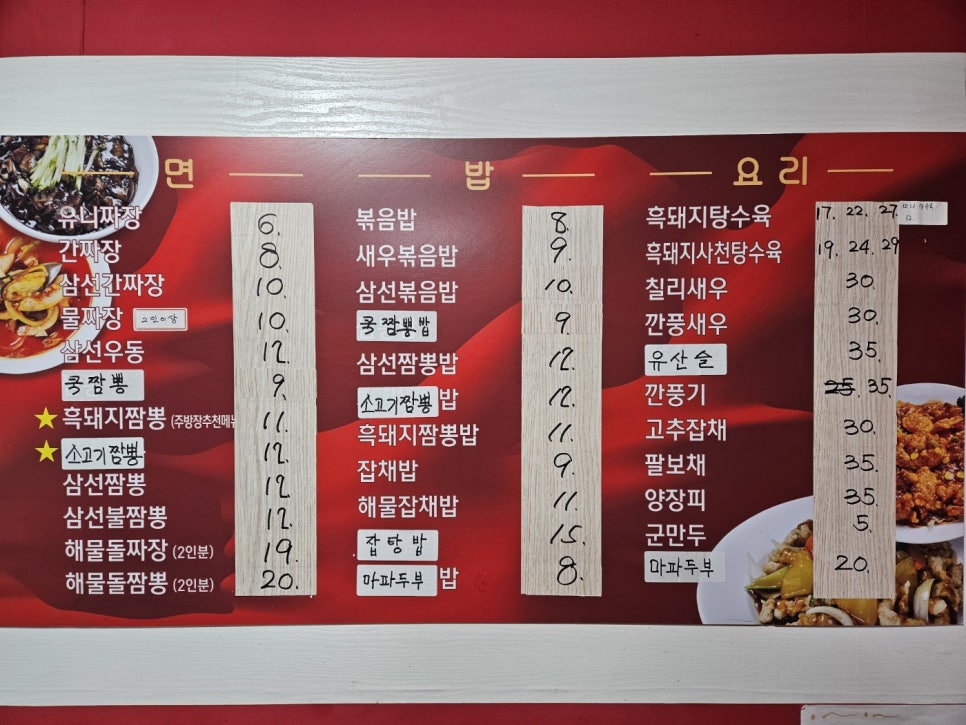 면
유니짜장 6.
간짜장 8.
삼선간짜장 10.
물짜장 2인이상 10.
삼선우동 12.
쿡짬뽕 9.
흑돼지짬뽕 (주방장추천메뉴 11.
소고기짬뽕 12.
삼선짬뽕 12.
삼선불짬뽕 12.
해물돌짜장 (2인분) 19.
해물돌짬뽕 (2인분) 20.
밥
볶음밥 8.
새우볶음밥 9.
삼선볶음밥 10.
쿡짬뽕밥 9.
삼선짬뽕밥 12.
소고기짬뽕밥 12.
흑돼지짬뽕밥 11.
잡채밥 9.
해물잡채밥 11.
잡탕밥 15.
마파두부밥 8.
요리
흑돼지탕수육 17. 22. 27 12.
흑돼지사천탕수육 19. 24. 29
칠리새우 30.
깐풍새우 30.
유산슬 35.
깐풍기 25 35.
고추잡채 30.
팔보채 35.
양장피 35.
군만두 5.
마파두부 20.